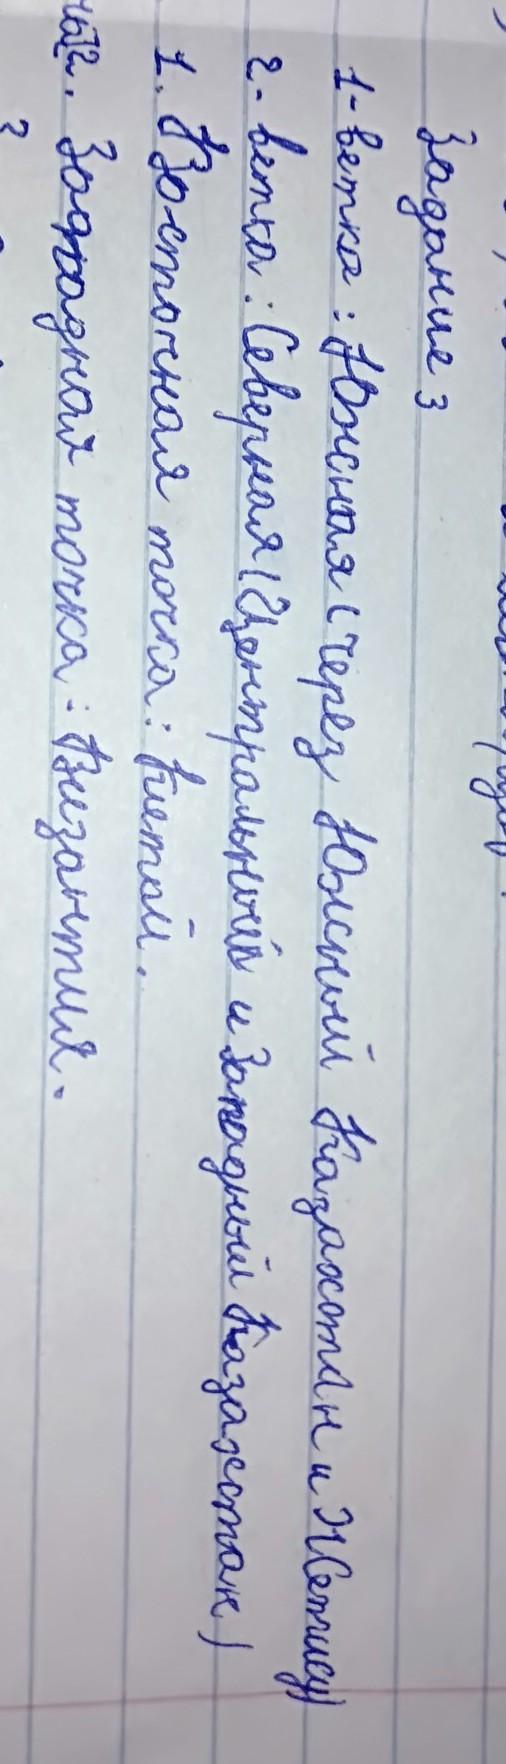 Задание 3
1-ветка: Южная (через Южный Казахстан и Жетысу)
2-ветка: Северная (Центральный и Западный Казахстан)
1. Восточная точка: Китай.
2. Западная точка: Византия.